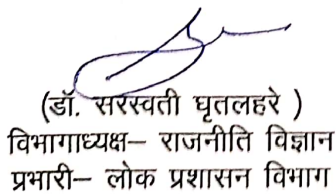 (डॉ. सरस्वती घृतलहरे )
विभागाध्यक्ष– राजनीति विज्ञान
प्रभारी– लोक प्रशासन विभाग